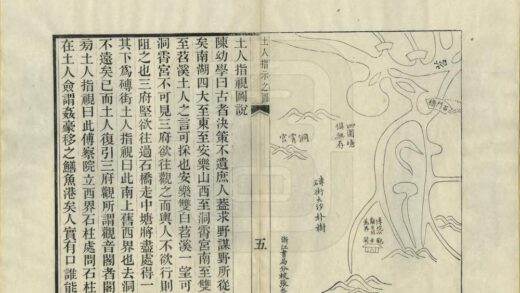 洞霄宮
四圍塘
俱無存
磚街大沙朴樹
浙江書局分校張
土人指示之圖
五
土人指視圖說
陳幼學曰古者決策不遺庶人蓋求野謀野所從
矣南湖四大至東至安樂山西至洞霄宮南至雙
至苕溪土人之言可採也安樂雙白苕溪一望可
洞霄宮不可見三府欲往觀之而輿人不欲行則
阻之也三府堅欲往過石橋走中塘將盡處得一
其下爲磚街土人指視曰此南上舊西界也去洞
不遠矣已而土人復引三府觀所謂觀音閣者閣
旁土人指視曰此傅察院立西界石柱處問石柱
在土人僉謂姦豪移之鱔魚港矣人實有口誰能